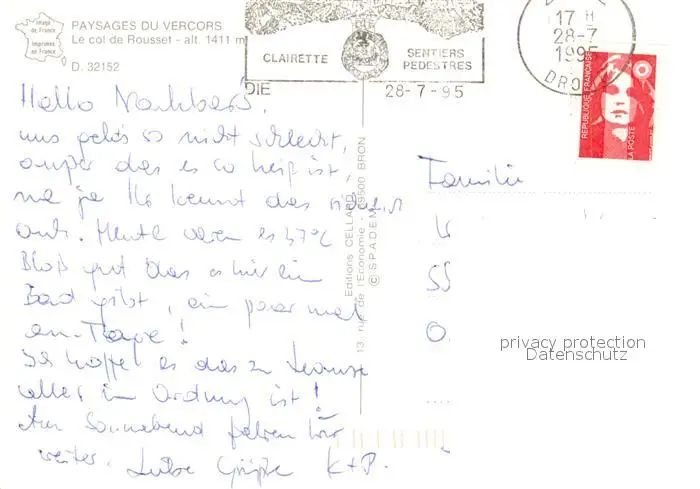 Image
de France
Imprimée
en France
PAYSAGES DU VERCORS
Le col de Rousset - alt. 1411 m
D. 32152
CLAIRETTE
SENTIERS
PEDESTRES
DIE
28-7-95
17 H
28-7
1995
DRO
REPUBLIQUE FRANÇAISE
LA POSTE
Hallo Nachbars,
uns geht's so nicht schlecht,
außer das es so heiß ist,
na ja Ihr kennt das
auch. Heute waren es 37°C
Bloß gut das es hier ein
Bad gibt, ein paar mal
am Tage!
Ich hoffe es das zu Hause
alles in Ordnung ist!
Am Sonnabend fahren wir
weiter. Liebe Grüße K+P.
Editions CELLARD
13, rue de l'Economie - 69500 BRON
© S.P.A.D.E.M.
Familie
privacy protection
Datenschutz